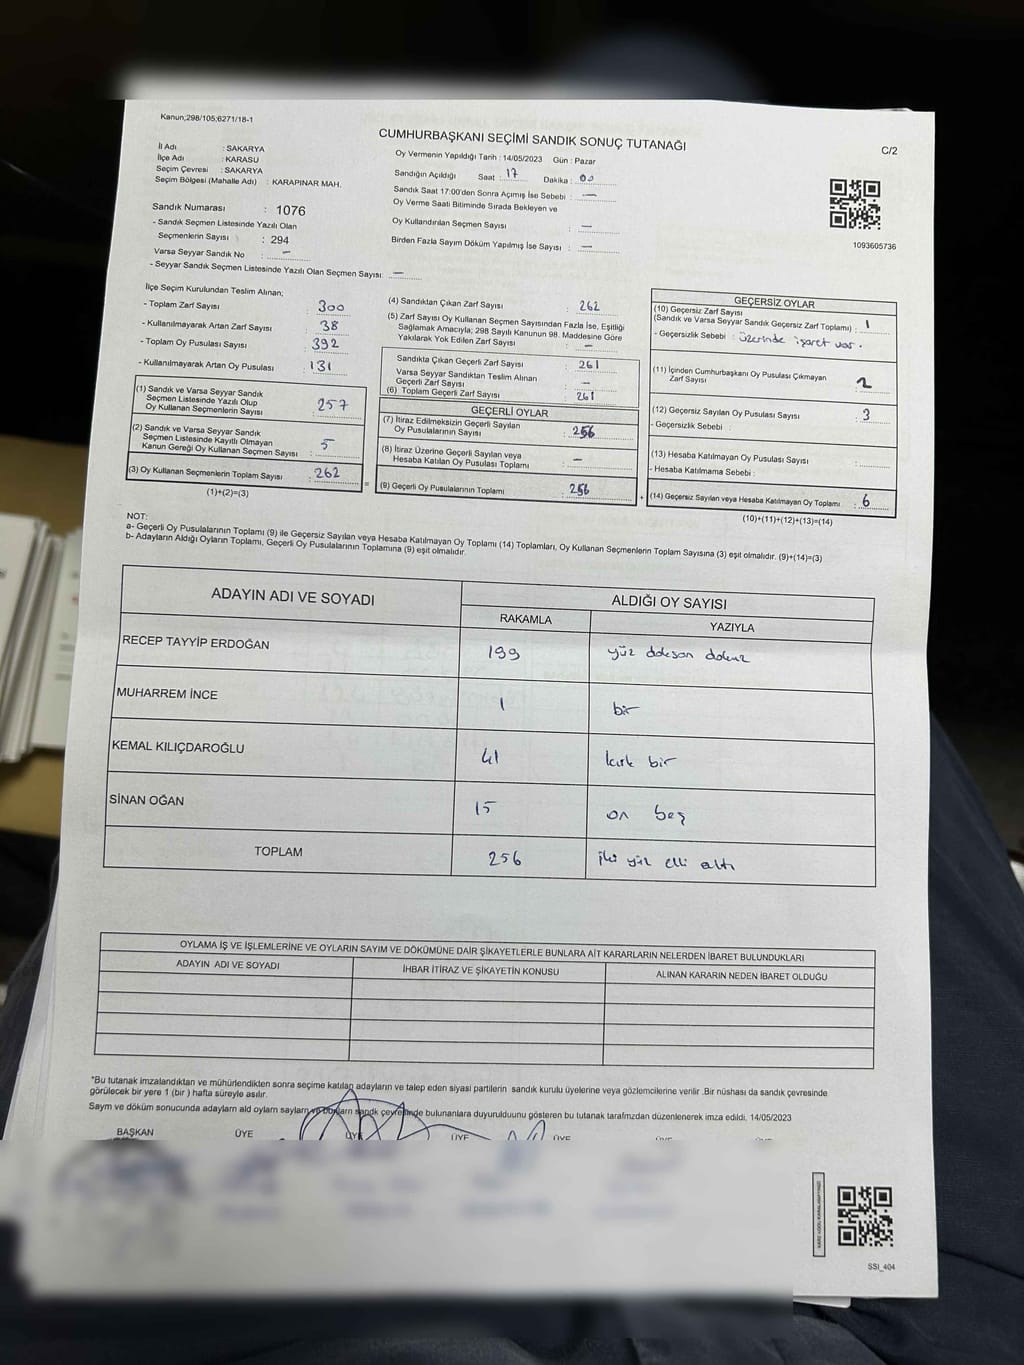 Kanun;298/105;6271/18-1
CUMHURBAŞKANI SEÇİMİ SANDIK SONUÇ TUTANAĞI
C/2
İl Adı : SAKARYA
İlçe Adı : KARASU
Seçim Çevresi : SAKARYA
Seçim Bölgesi (Mahalle Adı) : KARAPINAR MAH.
Sandık Numarası : 1076
- Sandık Seçmen Listesinde Yazılı Olan
Seçmenlerin Sayısı : 294
Varsa Seyyar Sandık No : –
- Seyyar Sandık Seçmen Listesinde Yazılı Olan Seçmen Sayısı: –
Oy Vermenin Yapıldığı Tarih : 14/05/2023 Gün : Pazar
Sandığın Açıldığı Saat : 17 Dakika : 00
Sandık Saat 17:00'den Sonra Açımış İse Sebebi : –
Oy Verme Saati Bitiminde Sırada Bekleyen ve
Oy Kullandırılan Seçmen Sayısı : –
Birden Fazla Sayım Döküm Yapılmış İse Sayısı : –
1093605736
İlçe Seçim Kurulundan Teslim Alınan;
- Toplam Zarf Sayısı : 300
- Kullanılmayarak Artan Zarf Sayısı : 38
- Toplam Oy Pusulası Sayısı : 392
- Kullanılmayarak Artan Oy Pusulası : 131
(1) Sandık ve Varsa Seyyar Sandık
Seçmen Listesinde Yazılı Olup
Oy Kullanan Seçmenlerin Sayısı : 257
(2) Sandık ve Varsa Seyyar Sandık
Seçmen Listesinde Kayıtlı Olmayan
Kanun Gereği Oy Kullanan Seçmen Sayısı : 5
(3) Oy Kullanan Seçmenlerin Toplam Sayısı : 262
(1)+(2)=(3)
=
(4) Sandıktan Çıkan Zarf Sayısı : 262
(5) Zarf Sayısı Oy Kullanan Seçmen Sayısından Fazla İse, Eşitliği
Sağlamak Amacıyla; 298 Sayılı Kanunun 98. Maddesine Göre
Yakılarak Yok Edilen Zarf Sayısı : –
Sandıkta Çıkan Geçerli Zarf Sayısı : 261
Varsa Seyyar Sandıktan Teslim Alınan
Geçerli Zarf Sayısı : –
(6) Toplam Geçerli Zarf Sayısı : 261
GEÇERLİ OYLAR
(7) İtiraz Edilmeksizin Geçerli Sayılan
Oy Pusulalarının Sayısı : 256
(8) İtiraz Üzerine Geçerli Sayılan veya
Hesaba Katılan Oy Pusulası Toplamı : –
(9) Geçerli Oy Pusulalarının Toplamı : 256
+
GEÇERSİZ OYLAR
(10) Geçersiz Zarf Sayısı
(Sandık ve Varsa Seyyar Sandık Geçersiz Zarf Toplamı) : 1
- Geçersizlik Sebebi : üzerinde işaret var.
(11) İçinden Cumhurbaşkanı Oy Pusulası Çıkmayan
Zarf Sayısı : 2
(12) Geçersiz Sayılan Oy Pusulası Sayısı : 3
- Geçersizlik Sebebi :
(13) Hesaba Katılmayan Oy Pusulası Sayısı :
- Hesaba Katılmama Sebebi :
(14) Geçersiz Sayılan veya Hesaba Katılmayan Oy Toplamı : 6
(10)+(11)+(12)+(13)=(14)
NOT:
a- Geçerli Oy Pusulalarının Toplamı (9) ile Geçersiz Sayılan veya Hesaba Katılmayan Oy Toplamı (14) Toplamları, Oy Kullanan Seçmenlerin Toplam Sayısına (3) eşit olmalıdır. (9)+(14)=(3)
b- Adayların Aldığı Oyların Toplamı, Geçerli Oy Pusulalarının Toplamına (9) eşit olmalıdır.
ADAYIN ADI VE SOYADI
ALDIĞI OY SAYISI
RAKAMLA
YAZIYLA
RECEP TAYYİP ERDOĞAN 199 yüz doksan dokuz
MUHARREM İNCE 1 bir
KEMAL KILIÇDAROĞLU 41 kırk bir
SİNAN OĞAN 15 on beş
TOPLAM 256 iki yüz elli altı
OYLAMA İŞ VE İŞLEMLERİNE VE OYLARIN SAYIM VE DÖKÜMÜNE DAİR ŞİKAYETLERLE BUNLARA AİT KARARLARIN NELERDEN İBARET BULUNDUKLARI
ADAYIN ADI VE SOYADI
İHBAR İTİRAZ VE ŞİKAYETİN KONUSU
ALINAN KARARIN NEDEN İBARET OLDUĞU
*Bu tutanak imzalandıktan ve mühürlendikten sonra seçime katılan adayların ve talep eden siyasi partilerin sandık kurulu üyelerine veya gözlemcilerine verilir .Bir nüshası da sandık çevresinde
görülecek bir yere 1 (bir ) hafta süreyle asılır.
Sayım ve döküm sonucunda adayların ald oyların sayları ve bunların sandk çevresinde bulunanlara duyurulduunu gösteren bu tutanak tarafmzdan düzenlenerek imza edildi. 14/05/2023
BAŞKAN ÜYE ÜYE ÜYE ÜYE
SSİ_404